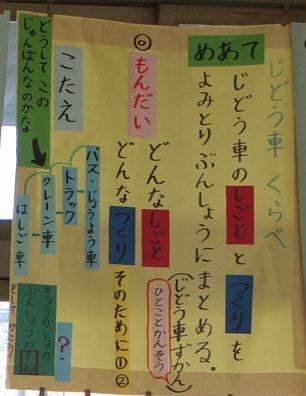 じどう車 くらべ
めあて
じどう車のしごと と つくり を
よみとりぶんしょうにまとめる。
(じどう車ずかん)
ひとことかんそう
◎
もんだい
どんなしごと
どんなつくり そのために①②
こたえ
バス・じょうよう車
トラック
クレーン車
はしご車
どうして この
じゅんばんなのかな
?
きょうかしょの
ぶんしょうのまね